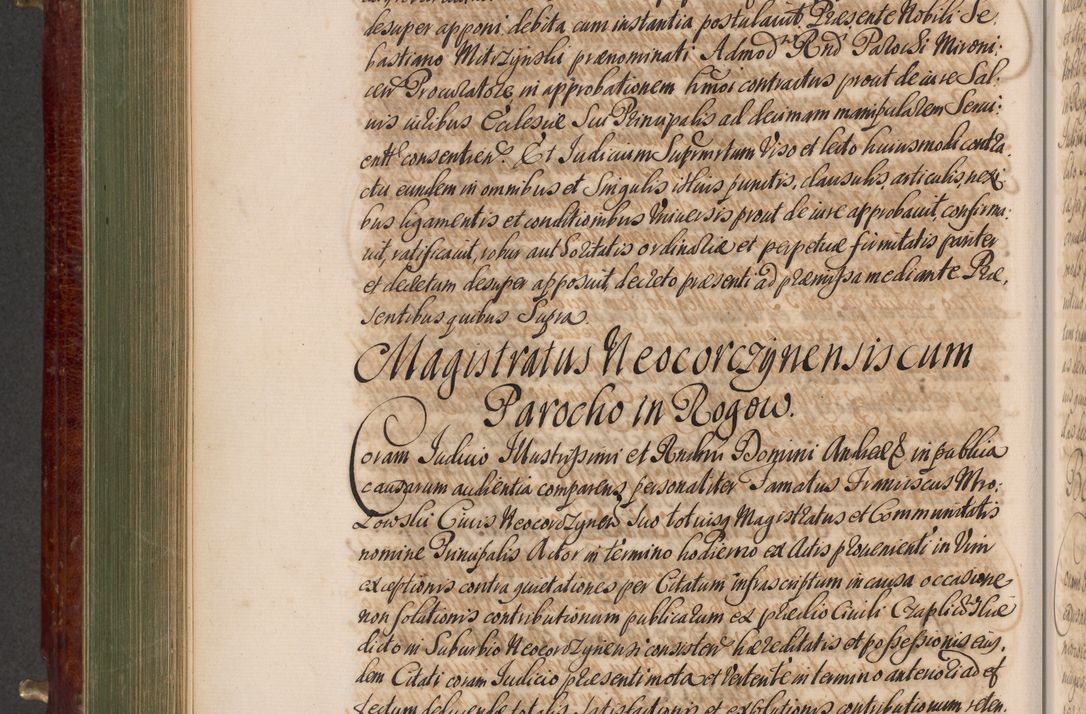 desuper apponi debita cum instantia postulavit Præsente Nobili Se,
bastiano Mitrzynski prænominati Admod Rnd Parochi Mironi,
cen Procuratore, in approbationem hmoi contractus prout de iure Sal,
vis iuribus Ecclesiæ Sui Principalis ad decimam manipularem Servi:
enti consentien. Et Judicium Supremum Viso et lecto huiusmodi contra,
ctu eundem in omnibus et Singulis illius punctis, clausulis articulis, nexi
bus ligamentis et conditionibus Universis prout de iure approbavit, confirma:
vit, ratificavit, robur authoritatis ordinariæ et perpetuæ firmitatis pariter
et decretum desuper apposuit, decreto præsenti ad præmissa mediante Præ,
sentibus quibus Supra.
Magistratus Neocorczynensis cum
Parocho in Rogow.
Coram Judicio Illustrissimi et Rndmi Domini Andreæ in publica
causarum audientia comparens personaliter Famatus Franciscus Mro,
zowski Civis Neocorczynen Suo totiusq Magistratus et Communitatis
nomine Principalis Actor in termino hodierno ex Actis provenienti in Vim
exceptionis contra quietationes per Citatum infrascriptum in causa occasione
non Solutionis contributionum publicarum ex prædio Civili
dicto in Suburbio Neocorczynensi consisten hæreditatis et possessionis eius,
dem Citati coram Judicio præsenti mota et Vertente in termino anteriori ad ef
fectum totalis Satisfactionis et exSolutionis contributionum